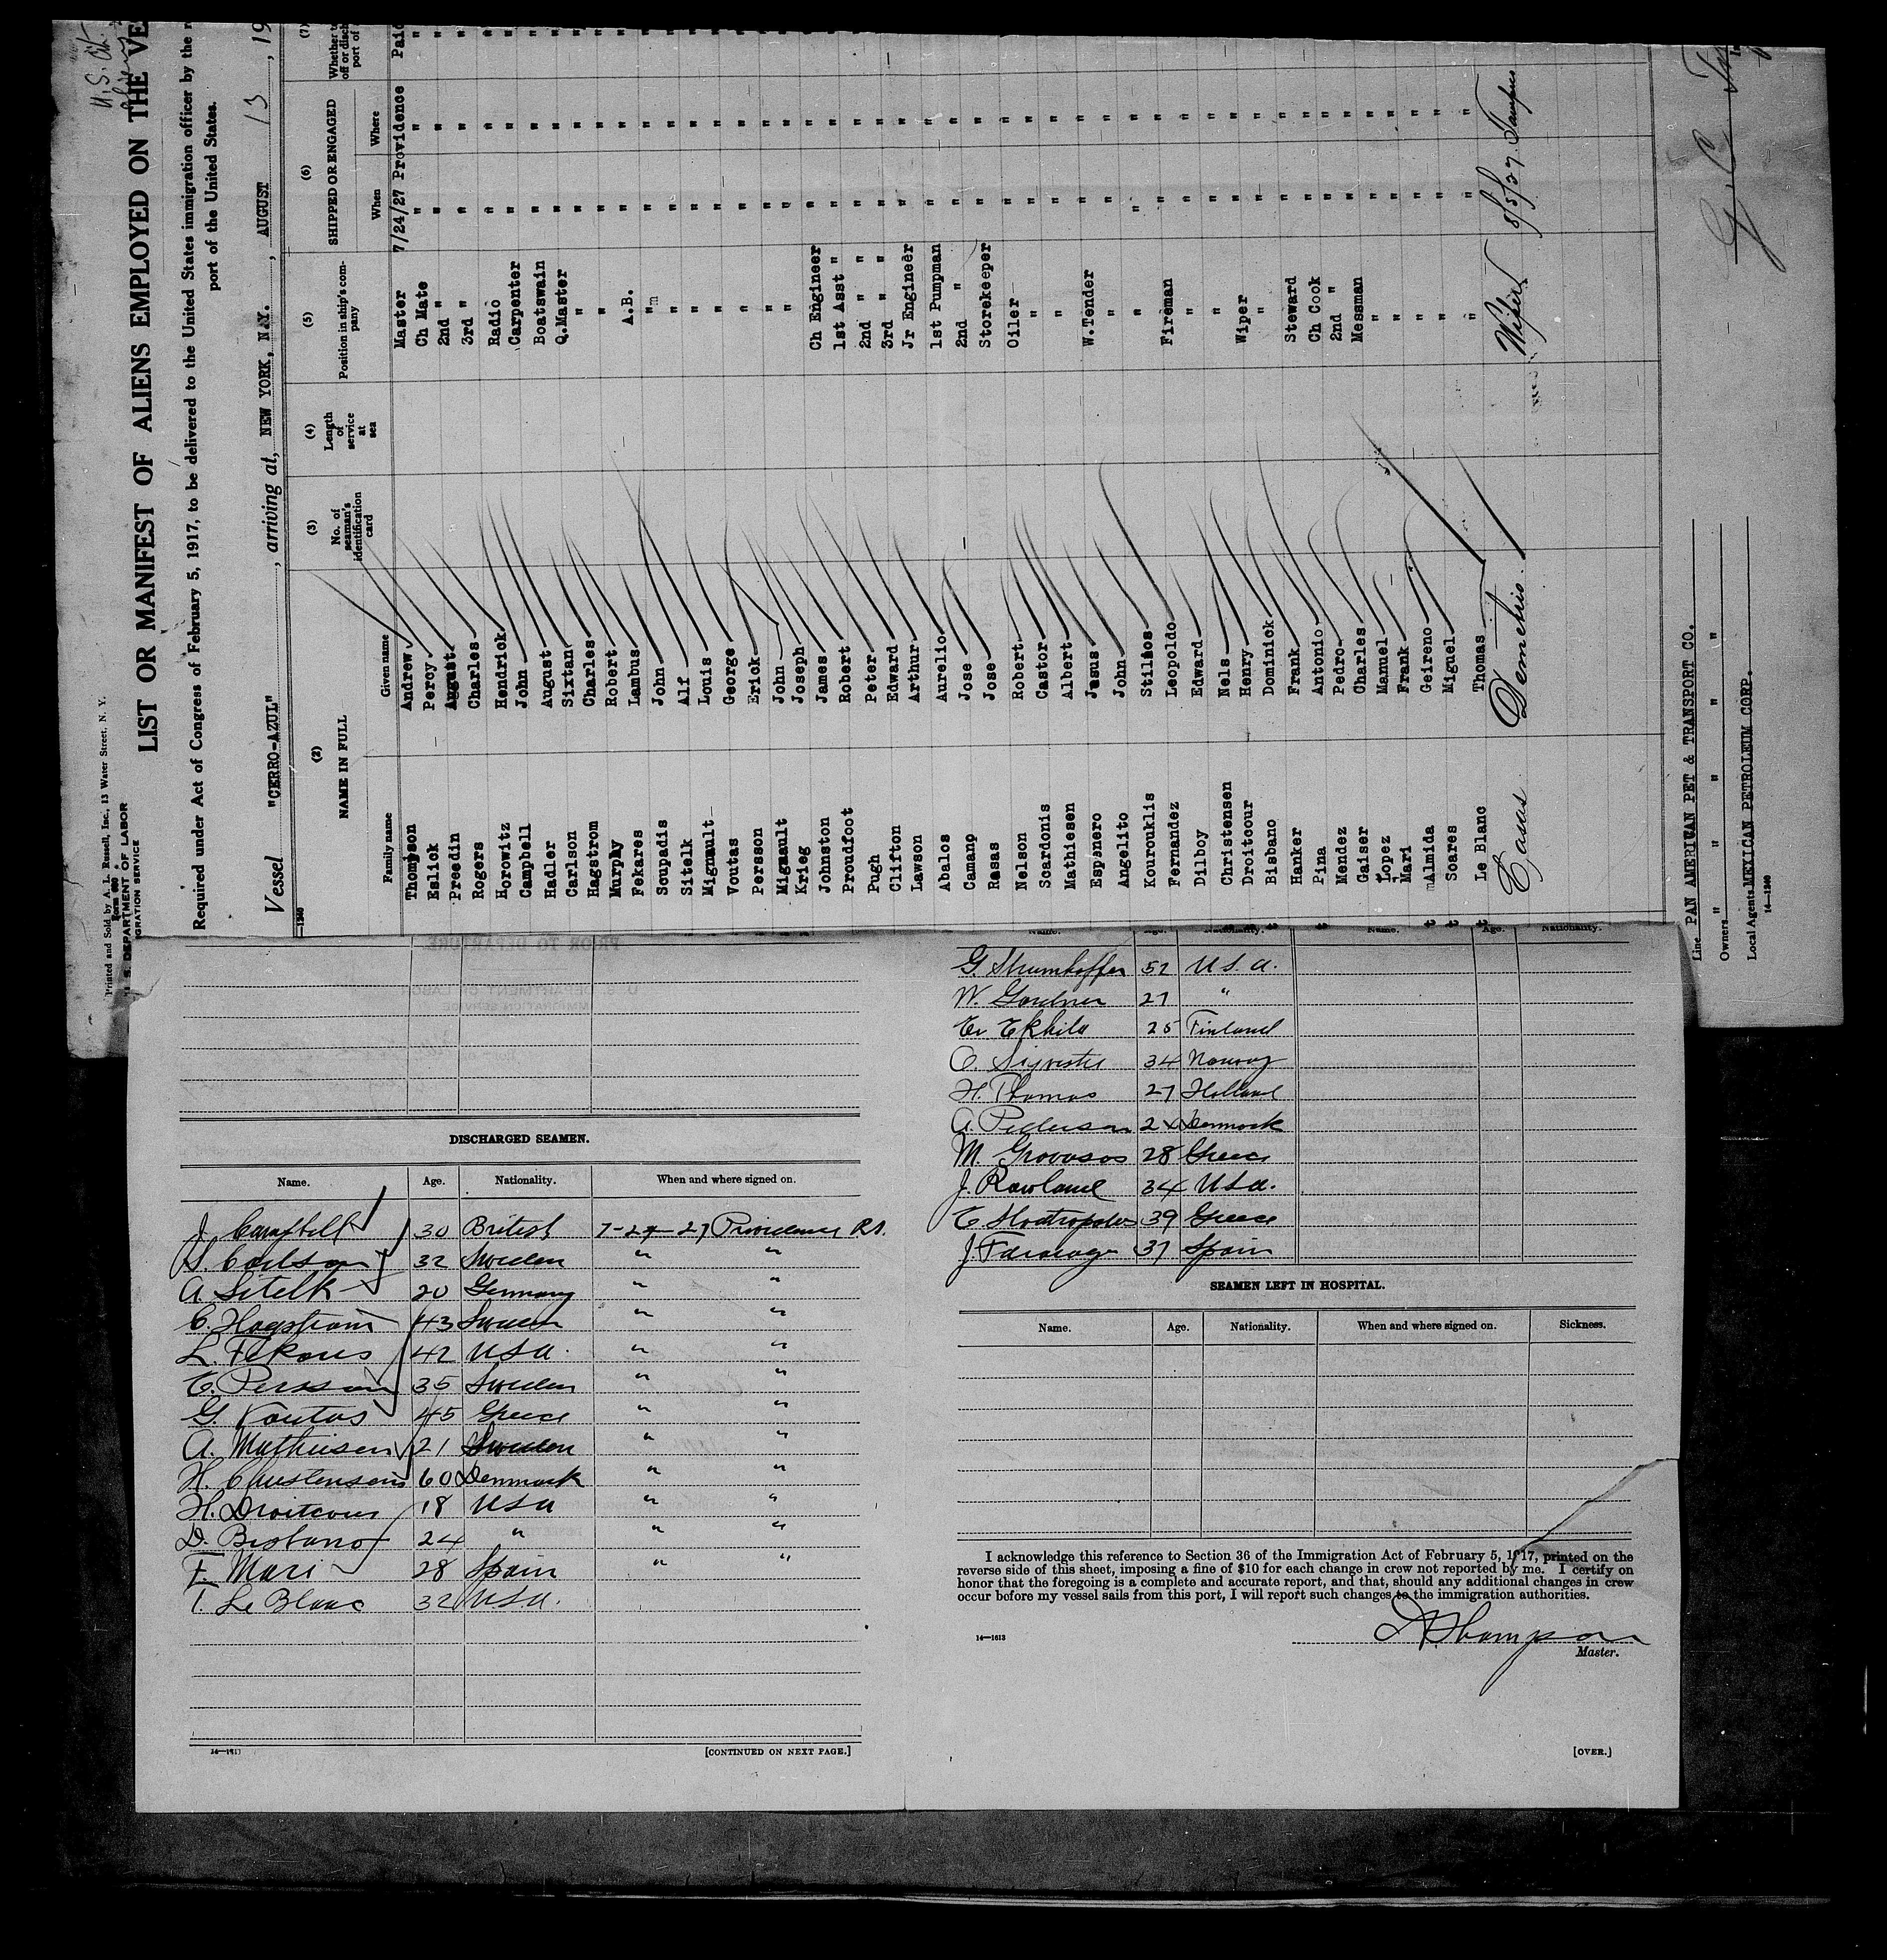 U.S. Cit.
Printed and Sold by A. L. Russell, Inc., 13 Water Street, N. Y.
S. DEPARTMENT OF LABOR
GRATION SERVICE
LIST OR MANIFEST OF ALIENS EMPLOYED ON THE VE
Required under Act of Congress of February 5, 1917, to be delivered to the United States immigration officer by the
port of the United States.
Vessel "CERRO-AZUL", arriving at, NEW YORK, N.Y., AUGUST 13, 19
14—1240
(2) (3) (4) (5) (6) (7)
NAME IN FULL No. of seaman's identification card Length of service at sea Position in ship's company SHIPPED OR ENGAGED Whether
Family name Given name When Where
Thompson Andrew Master 7/24/27 Providence Paid
Eslick Percy Ch Mate " " "
Freedin August 2nd " " " "
Rogers Charles 3rd " " " "
Horowitz Hendrick Radio " " "
Campbell John Carpenter " " "
Hadler August Boatswain " " "
Carlson Sixtan Q.Master " " "
Hagstrom Charles " " " "
Murphy Robert " " " "
Fekares Lambus A.B. " " "
Scupadis John " " " "
Sitelk Alf " " " "
Mignault Louis " " " "
Voutas George " " " "
Persson Erick " " " "
Mignault John " " " "
Krieg Joseph " " " "
Johnston James Ch Engineer " " "
Proudfoot Robert 1st Asst " " " "
Pugh Peter 2nd " " " " "
Clifton Edward 3rd " " " " "
Lawson Arthur Jr Engineer " " "
Abalos Aurelio 1st Pumpman " " "
Camanp Jose 2nd " " " "
Rasas Jose Storekeeper " " "
Nelson Robert Oiler " " "
Scardonis Castor " " " "
Mathiesen Albert " " " "
Espenero Jesus W.Tender " " "
Angelito John " " " "
Kourouklis Stilaos " " " "
Fernandez Leopoldo Fireman " " "
Dilboy Edward " " " "
Christensen Nels " " " "
Droitcour Henry Wiper " " "
Bisbano Dominick " " " "
Hanker Frank Steward " " "
Pina Antonio Ch Cook " " "
Mendez Pedro 2nd " " " "
Gaiser Charles Messman " " "
Lopez Manuel " " " "
Mari Frank " " " "
Almida Geireno " " " "
Soares Miguel " " " "
Le Blanc Thomas " " " "
Casas Demetrio Wiper 8/5/27 Tampico
Line PAN AMERICAN PET & TRANSPORT CO.
Owners " " " " "
Local Agents MEXICAN PETROLEUM CORP.
14—1240
PRIOR TO DEPARTURE
DISCHARGED SEAMEN.
Name. Age. Nationality. When and where signed on.
J. Campbell 30 British 7-24-27 Providence R.I.
S. Carlson 32 Sweden " "
A Sitelk 20 Germany " "
C. Hagstrom 43 Sweden " "
L. Fekares 42 USA. " "
E. Persson 35 Sweden " "
G. Voutas 45 Greece " "
A. Mathiesen 21 Sweden " "
H. Christensen 60 Denmark " "
H. Droitcour 18 USA " "
D. Bisbano 24 " " "
F. Mari 28 Spain " "
T. Le Blanc 32 USA.
14—1611
[CONTINUED ON NEXT PAGE.]
Name. Age. Nationality. Name. Age. Nationality.
G. Strumhoffer 52 U.S.A.
W. Gardner 27 "
Er Ekhila 25 Finland
O. Sijvestre 34 Norway
H. Thomas 27 Holland
A. Pederson 24 Denmark
M. Grovasos 28 Greece
J. Rowland 34 USA.
39 Greece
37 Spain
SEAMEN LEFT IN HOSPITAL.
Name. Age. Nationality. When and where signed on. Sickness.
I acknowledge this reference to Section 36 of the Immigration Act of February 5, 1917, printed on the
reverse side of this sheet, imposing a fine of $10 for each change in crew not reported by me. I certify on
honor that the foregoing is a complete and accurate report, and that, should any additional changes in crew
occur before my vessel sails from this port, I will report such changes to the immigration authorities.
14—1613
A Thompson
Master.
[OVER.]